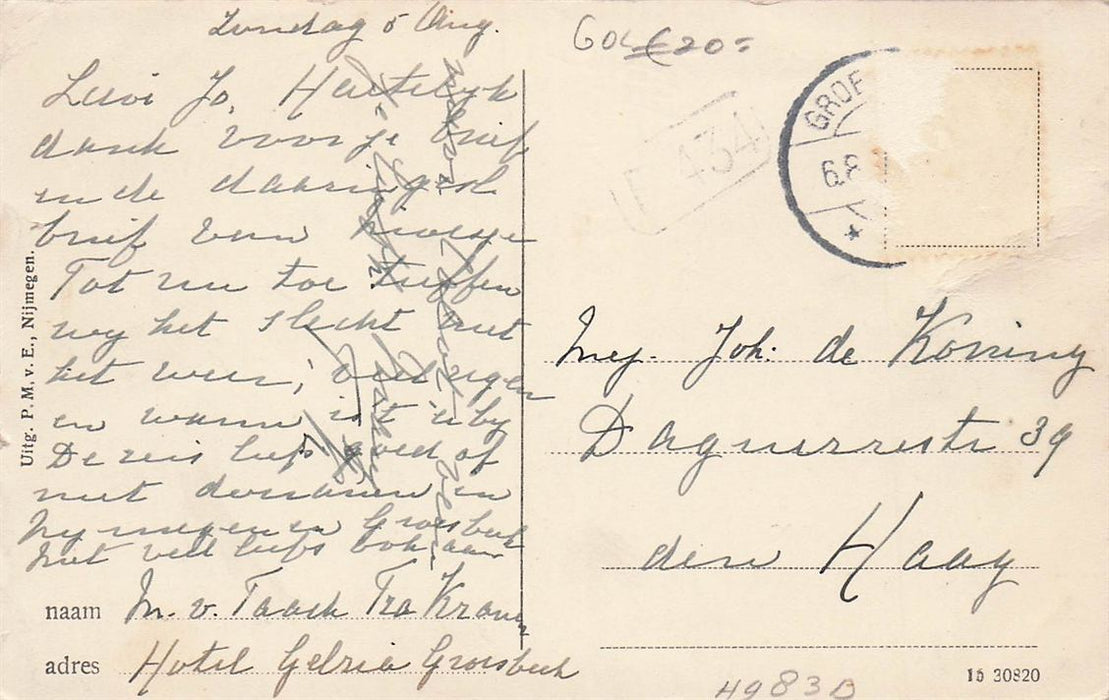 Zondag 5 Aug.
Lieve Jo, Hartelijk
dank voor je brief
en de daarin gesl
brief van
Tot nu toe treffen
wy het slecht met
het weer, veel regen
en warm is 't er by
De reis liep goed af
met in
Nymegen en Groesbeek
Met veel liefs ook aan
naam M. v. Taack Tra Kranen
adres Hotel Gelria Groesbeek
Uitg. P. M. v. E., Nijmegen.
GOL € 20=
434
GROE
6.8
Mej. Joh. de Koning
Daguerrestr 39
den Haag
15 30820
4983D